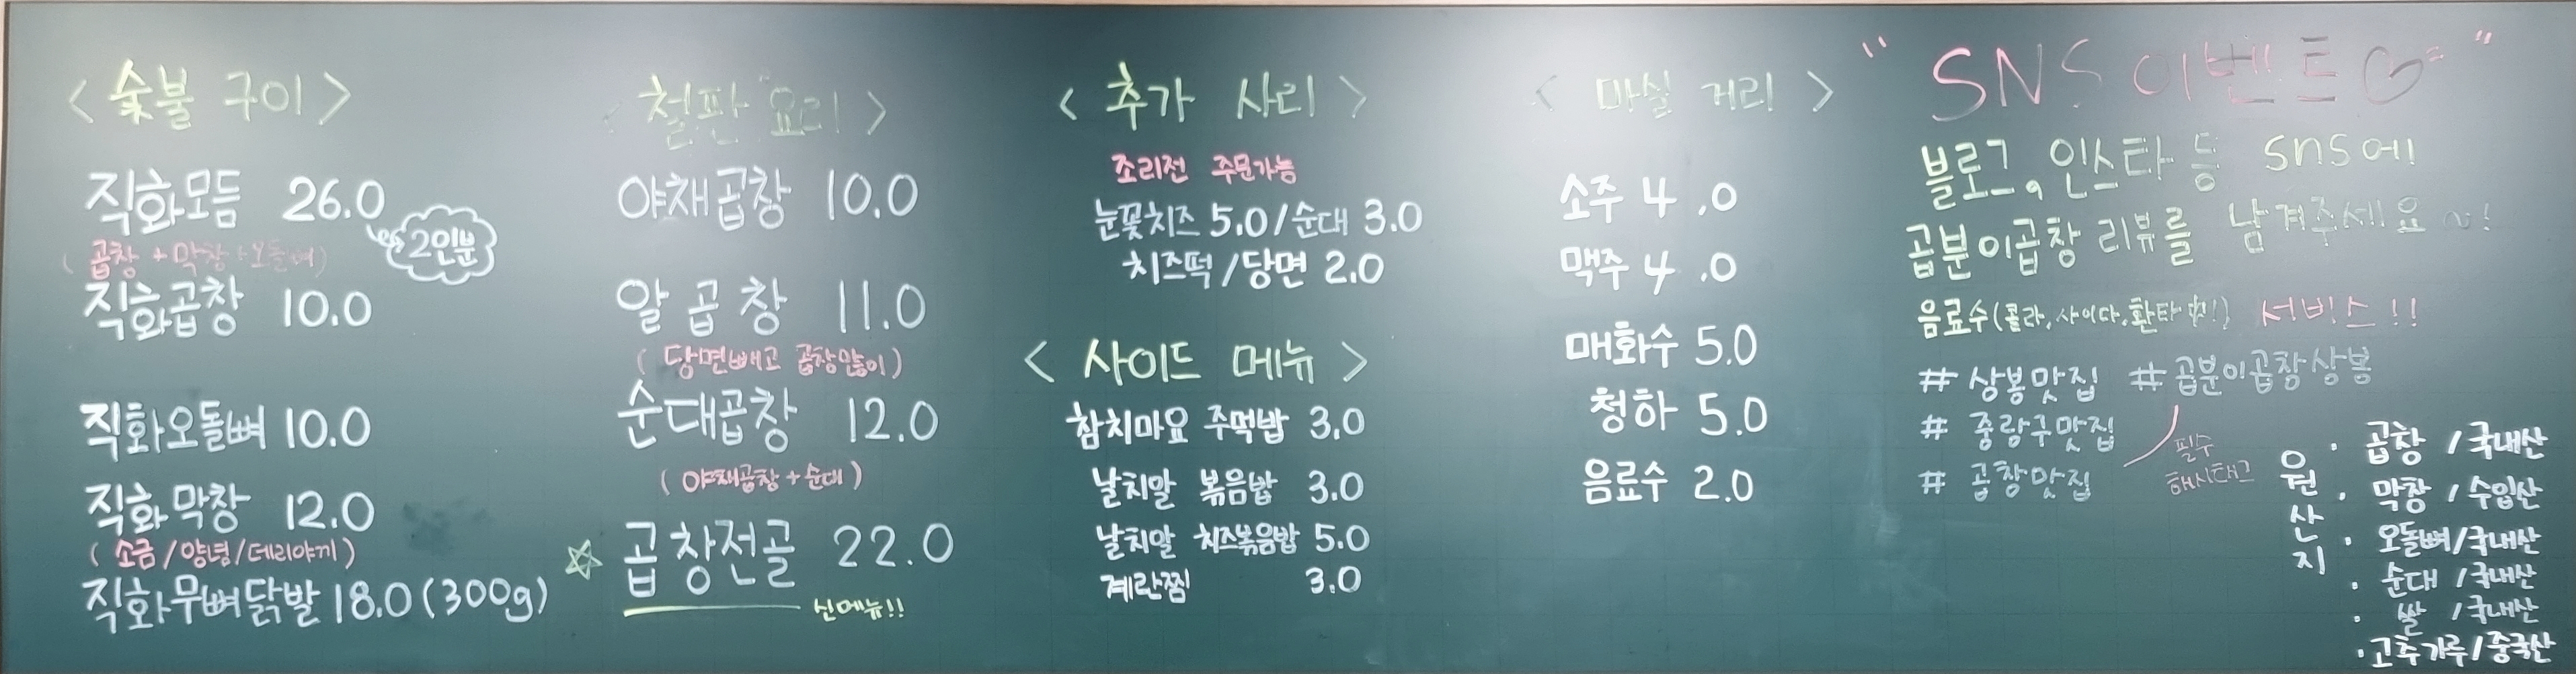 < 숯불 구이 >
직화모듬 26.0
2인분
( 곱창 + 막창 + 오돌뼈 )
직화곱창 10.0
직화오돌뼈 10.0
직화막창 12.0
( 소금 / 양념 / 데리야끼 )
직화무뼈닭발 18.0 (300g)
< 철판 요리 >
야채곱창 10.0
알곱창 11.0
( 당면빼고 곱창많이 )
순대곱창 12.0
( 야채곱창 + 순대 )
☆ 곱창전골 22.0
신메뉴!!
< 추가 사리 >
조리전 주문가능
눈꽃치즈 5.0 / 순대 3.0
치즈떡 / 당면 2.0
< 사이드 메뉴 >
참치마요 주먹밥 3.0
날치알 볶음밥 3.0
날치알 치즈볶음밥 5.0
계란찜 3.0
< 마실 거리 >
소주 4.0
맥주 4.0
매화수 5.0
청하 5.0
음료수 2.0
" SNS 이벤트 "
블로그, 인스타 등 sns에
곱분이곱창 리뷰를 남겨주세요~!
음료수(콜라, 사이다, 환타 中!) 서비스!!
# 상봉맛집 # 곱분이곱창상봉
# 중랑구맛집
# 곱창맛집
필수
해시태그
원산지
· 곱창 / 국내산
· 막창 / 수입산
· 오돌뼈 / 국내산
· 순대 / 국내산
· 쌀 / 국내산
· 고추가루 / 중국산